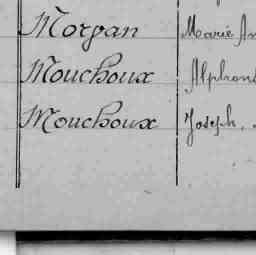 Morgan Marie An
Mouchoux Alphons
Mouchoux Joseph.